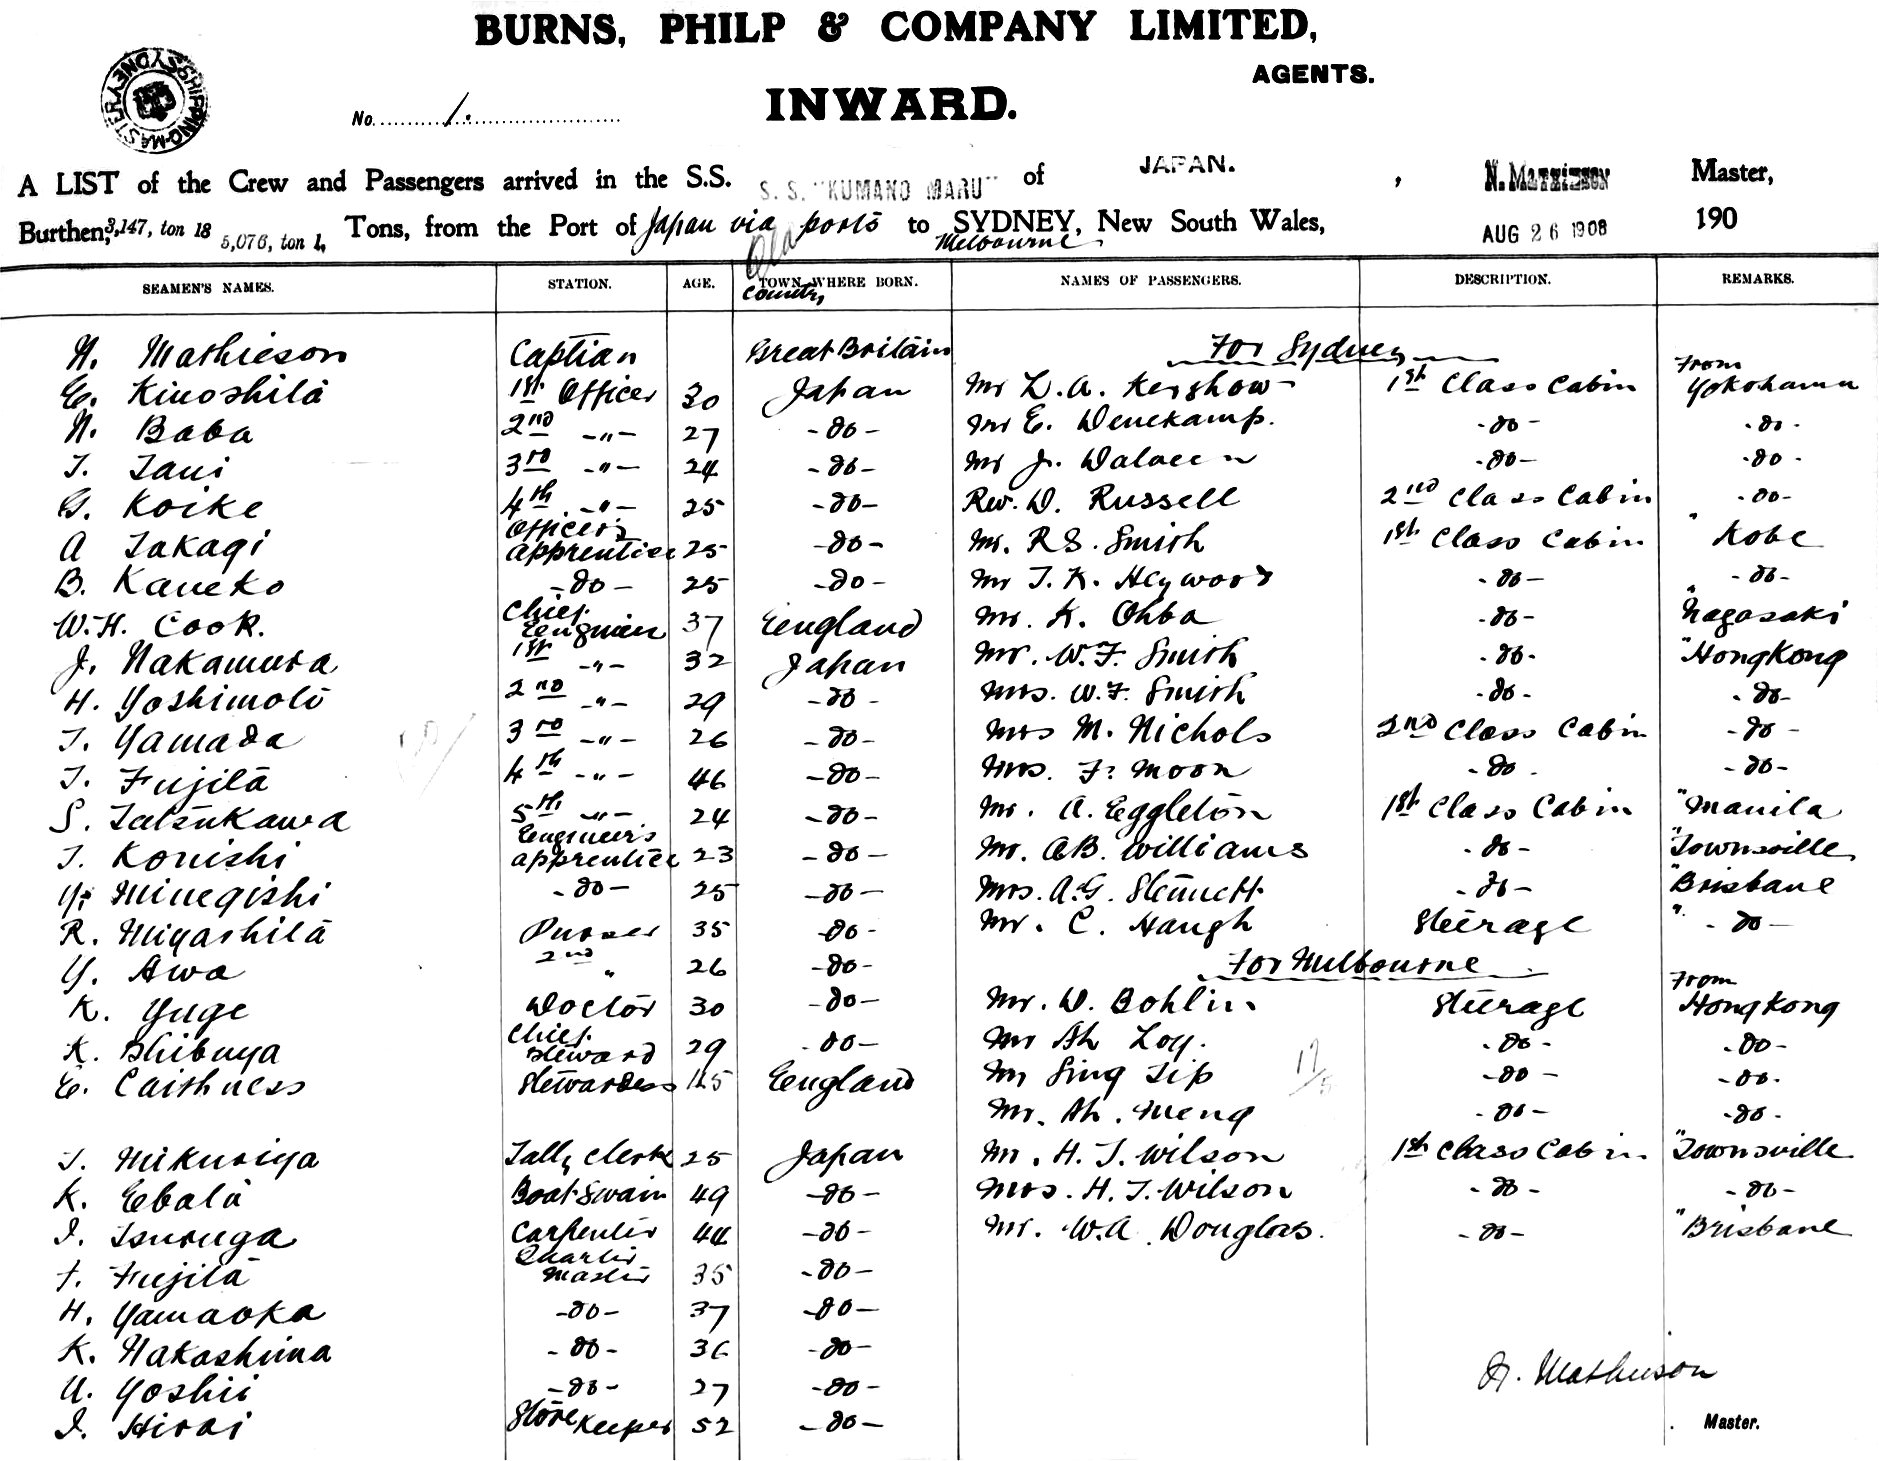 BURNS, PHILP & COMPANY LIMITED,
AGENTS.
INWARD.
SHIPPING MASTER SYDNEY
No. 1.
A LIST of the Crew and Passengers arrived in the S.S. S.S. "KUMANO MARU" of JAPAN. , N. MATHIESON Master,
Burthen, 3,147, ton 18 5,076, ton 1, Tons, from the Port of Japan via ports to SYDNEY, New South Wales, AUG 26 1908 190
Melbourne
SEAMEN'S NAMES. STATION. AGE. TOWN WHERE BORN. NAMES OF PASSENGERS. DESCRIPTION. REMARKS.
Country
N. Mathieson Captian Great Britain For Sydney From
E. Kinoshita 1st Officer 30 Japan Mr L. A. Kershow 1st Class Cabin Yokohama
N. Baba 2nd -"- 27 -do- Mr E. Denekamp. -do- -do-
T. Tani 3rd -"- 24 -do- Mr J. -do- -do-
G. Koike 4th -"- 25 -do- Rev. D. Russell 2nd Class Cabin -do-
A Takagi Officer's apprentice 25 -do- Mr. R S. Smith 1st Class Cabin " Kobe
B. Kaneko -do- 25 -do- Mr T. K. Heywood -do- -do-
W. H. Cook. Chief Eenginier 37 Eengland Mr. K. Ohba -do- " Nagasaki
J. Nakamura 1st -"- 32 Japan Mr. W. F. Smith -do- " HongKong
H. Yoshimoto 2nd -"- 29 -do- Mrs. W. F. Smith -do- -do-
T. Yamada 3rd -"- 26 -do- Mrs M. Nichols 2nd Class Cabin -do-
T. Fujita 4th -"- 46 -do- Mrs. F. Moon -do- -do-
S. Tatsukawa 5th -"- 24 -do- Mr. A. Eggleton 1st Class Cabin " Manila
T. Konishi Eengineer's apprentice 23 -do- Mr. A B. Williams -do- " Townsville
Y. Minegishi -do- 25 -do- Mrs. A. G. Stennett -do- " Brisbane
R. Miyashita Purser 35 -do- Mr. C. Haugh Steerage " -do-
Y. Awa 2nd " 26 -do- For Melbourne From
K. Yuge Doctor 30 -do- Mr. D. Bohlin Steerage HongKong
K. Shibuya Chief Steward 29 -do- Mr Ah Loy. -do- -do-
E. Caithness Stewardess 45 Eengland Mr Sing Tip -do- -do-
Mr. Ah. Meng -do- -do-
T. Mikuriya Tally Clerk 25 Japan Mr. H. T. Wilson 1st Class Cabin " Townsville
K. Ebata Boat Swain 49 -do- Mrs. H. T. Wilson -do- -do-
I. Tsuruga Carpenter 44 -do- Mr. W. A. Douglas. -do- " Brisbane
T. Fujita Quarter Master 35 -do-
H. Yamaoka -do- 37 -do-
K. Nakashima -do- 36 -do-
U. Yoshii -do- 27 -do-
I. Hirai Store Keeper 52 -do-
N. Mathieson
Master.